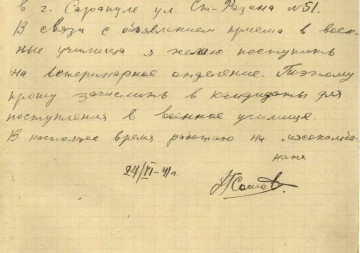 в г. Сарапуле ул. Ст-Разина № 51.
В связи с объявлением приема в воен-
ные училища я желаю поступить
на ветеринарное отделение. Поэтому
прошу зачислить в кандидаты для
поступления в военное училище.
В настоящее время работаю на мясокомби-
нате
24/VI-41г.